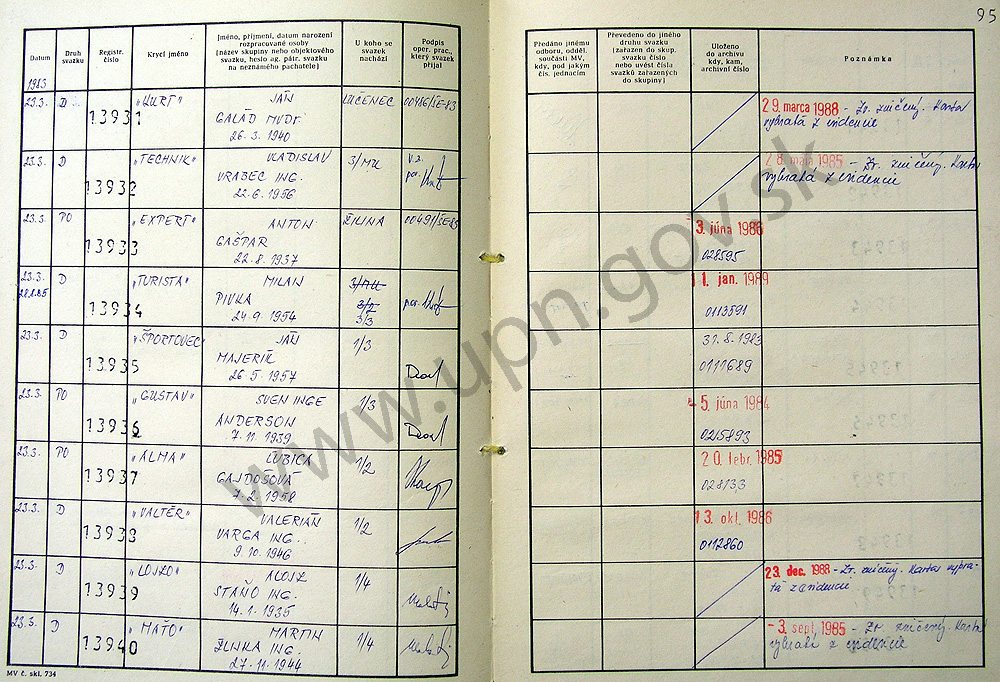 95
Datum
Druh svazku
Registr. číslo
Krycí jméno
Jméno, příjmení, datum narození
rozpracované osoby
(název skupiny nebo objektového
svazku, heslo ag. pátr. svazku
na neznámého pachatele)
U koho se
svazek
nachází
Podpis
oper. prac.,
který svazek
přijal
Předáno jinému
odboru, odděl.
součásti MV,
kdy, pod jakým
čís. jednacím
Převedeno do jiného
druhu svazku
(zařazen do skup.
svazku číslo
nebo uvést čísla
svazků zařazených
do skupiny)
Uloženo
do archivu
kdy, kam,
archivní číslo
Poznámka
1983
23.3. D 13931 "KURT" JÁN LUČENEC 00486/SE-83
GALÁD MUDr.
26.3.1940
29. marca 1988 - Zv. zničený. Karta
vybratá z evidencie
23.3. D 13932 "TECHNIK" VLADISLAV 3/MU
VRABEC ING.
22.6.1956
28. mája 1985 - Zv. zničený. Karta
vybratá z evidencie
23.3. PO 13933 "EXPERT" ANTON ŽILINA 00491/SE-83
GAŠPAR
22.8.1937
3. júna 1986
028595
23.3. D 13934 "TURISTA" MILAN 3/MU
PIVKA 3/2
24.9.1954 3/3
11. jan. 1989
0113591
23.3. D 13935 "ŠPORTOVEC" JÁN 1/3
MAJERÍK
26.5.1957
31.8.1983
0111689
23.3. PO 13936 "GUSTAV" SVEN INGE 1/3
ANDERSON
7.11.1939
5. júna 1984
0215893
23.3. PO 13937 "ALMA" ĽUBICA 1/2
GAJDOŠOVÁ
7.2.1958
20. febr. 1985
028133
23.3. D 13938 "VALTER" VALERIÁN 1/2
VARGA ING.
9.10.1946
13. okt. 1986
0112860
23.3. D 13939 "LOJZO" ALOJZ 1/4
STAŇO ING.
14.1.1935
23. dec. 1988 - Zv. zničený. Karta vybra-
tá z evidencie
23.3. D 13940 "MAŤO" MARTIN 1/4
ŽLNKA ING.
27.11.1944
3. sept. 1985 - Zv. zničený. Karta
vybratá z evidencie
MV č. skl. 734
www.upn.gov.sk